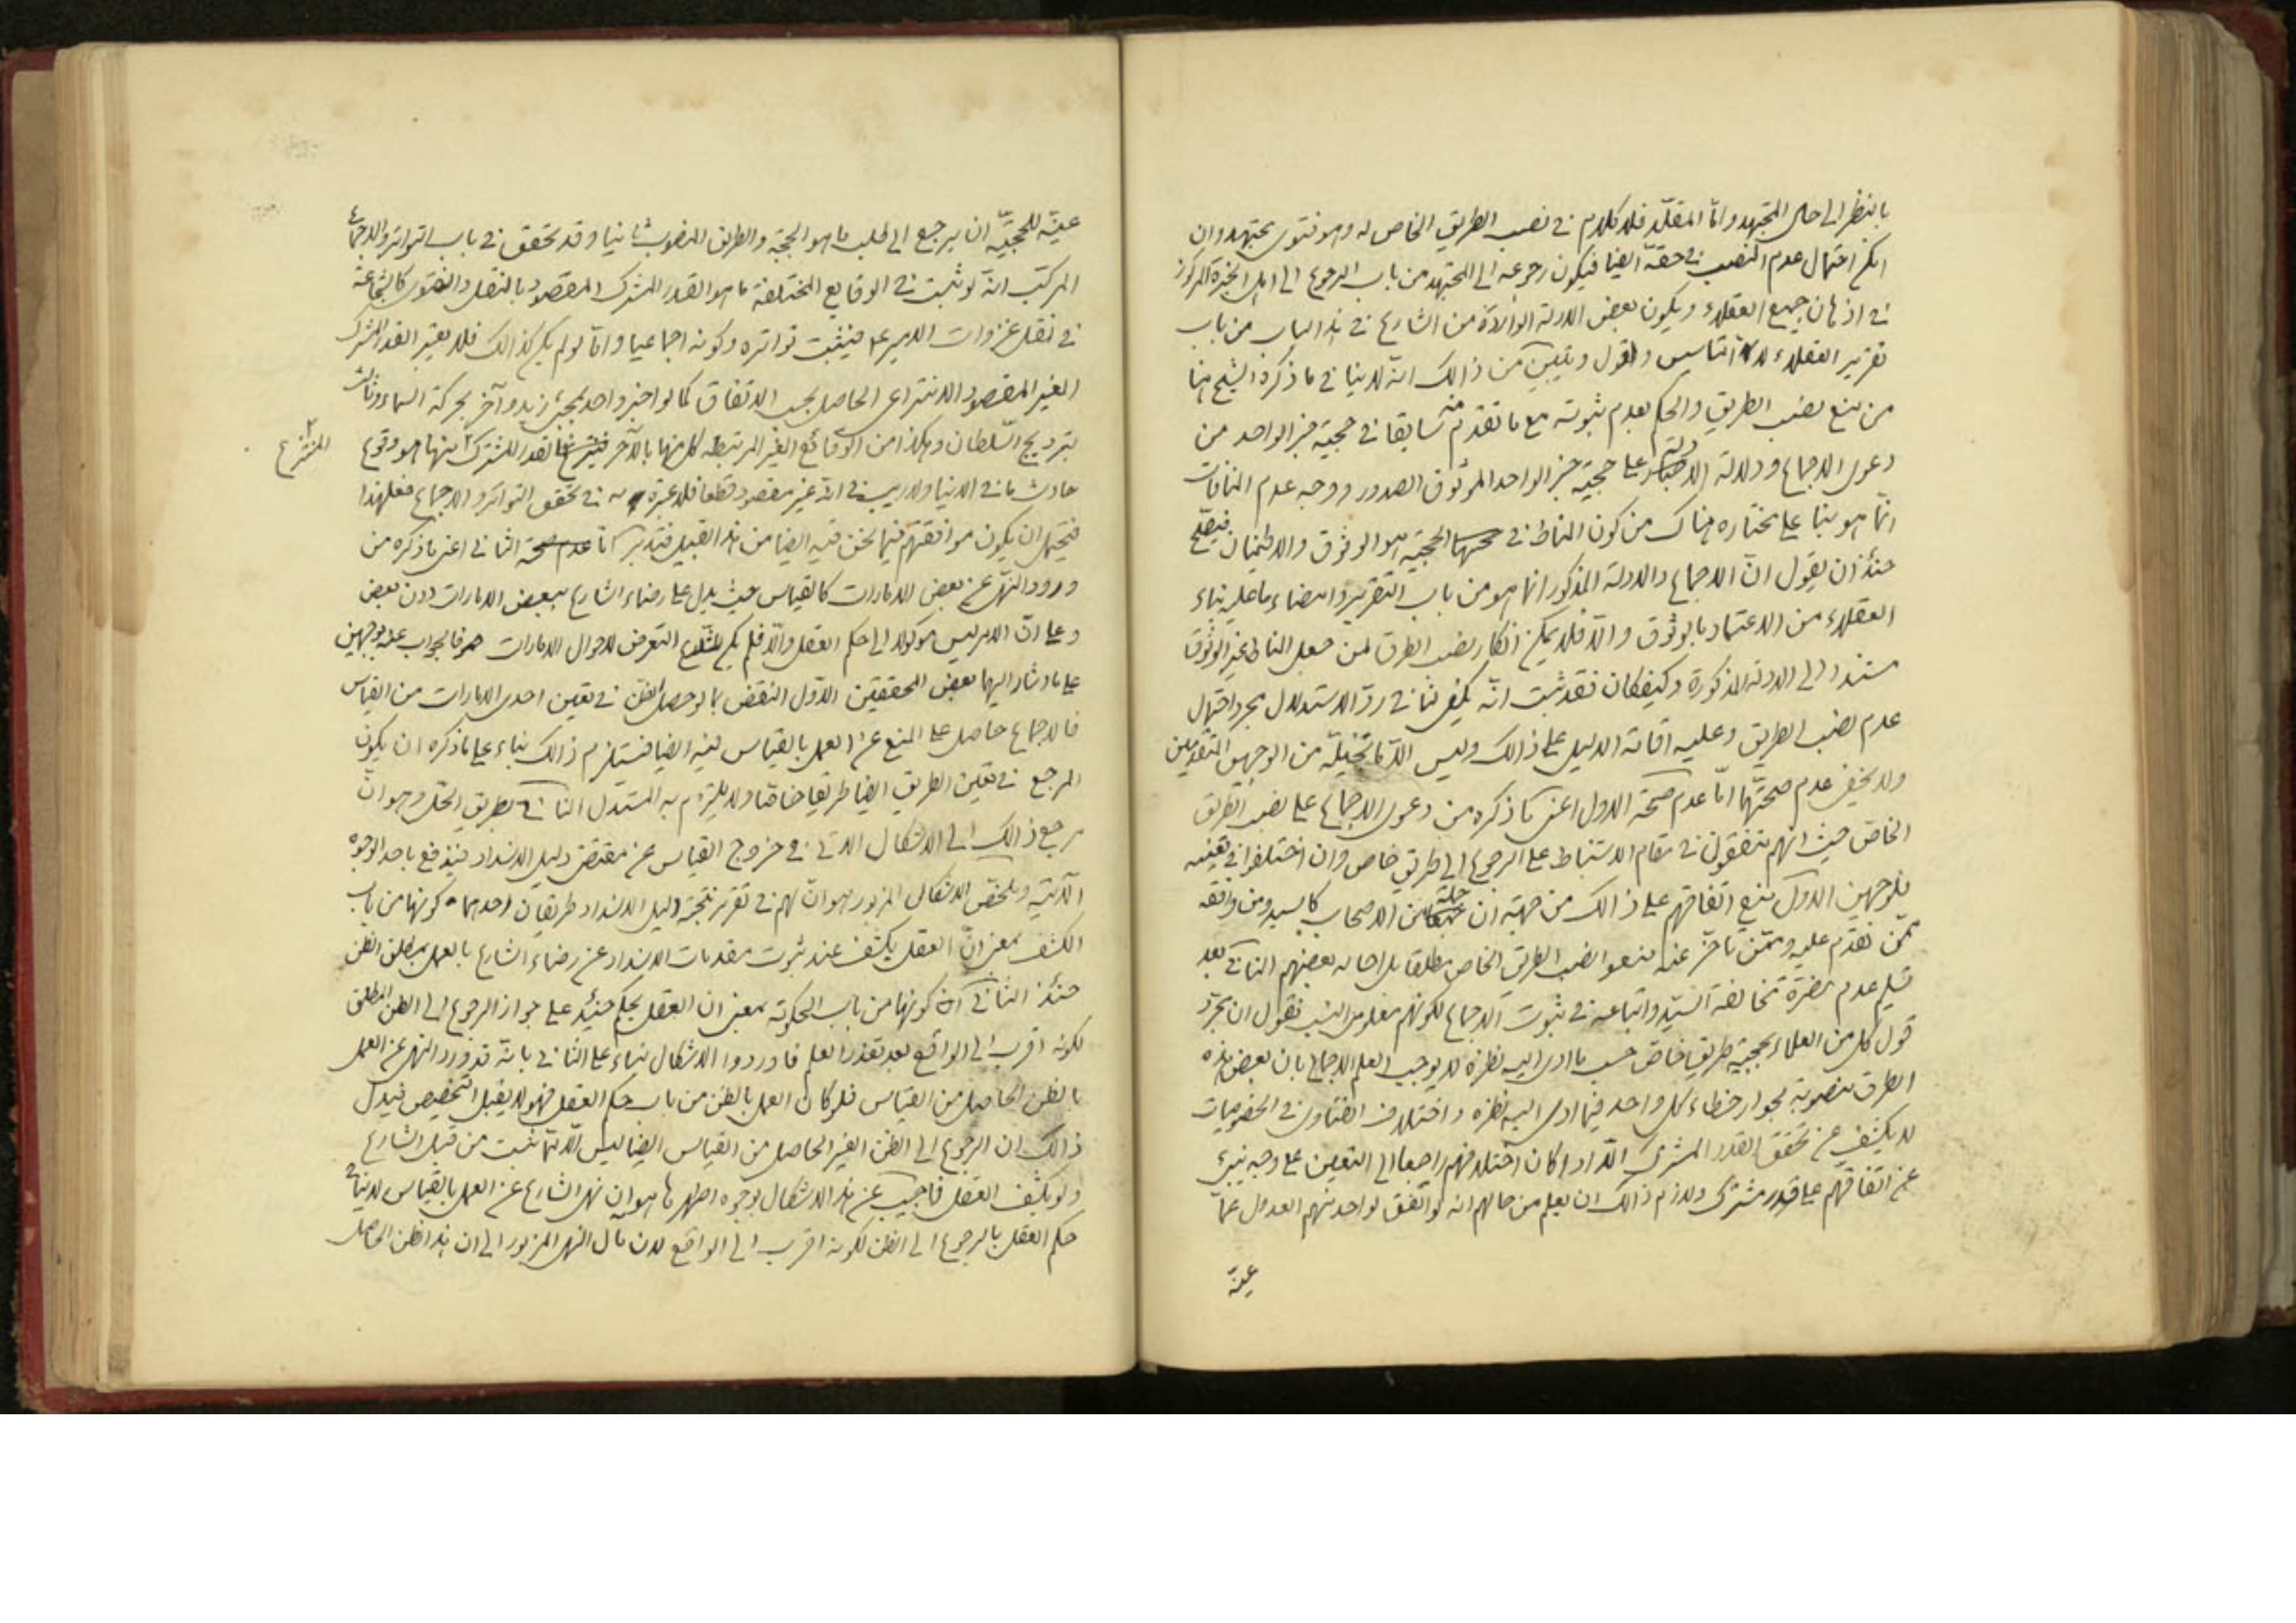 بالنظر الى حال المجتهد وامّا المقلّد فلا كلام فى نصب الطريق الخاص له وهو فتوى مجتهده وان
امكن احتمال عدم النصب فى حقه ايضا فيكون رجوعه الى المجتهد من باب الرجوع الى اهل الخبرة المركوز
فى اذهان جميع العقلاء ويكون بعض الادلة الواردة من الشارع فى هذا الباب من باب
تقرير العقلاء لا التاسيس واقول ويتبين من ذالك انه لا ينافى ما ذكره الشيخ هنا
من منع نصب الطريق والحكم بعدم ثبوته مع ما تقدم منه سابقا فى حجية خبر الواحد من
دعوى الاجماع ودلالة الاخبار على حجية خبر الواحد الموثوق الصدور ووجه عدم المنافات
انّما هو بناء على مختاره هناك من كون المناط فى الحجية هو الوثوق والاطمينان فيصحّ
حينئذ ان يقول انّ الاجماع والادلة المذكور انما هو من باب التقرير وامضاء ما عليه بناء
العقلاء من الاعتماد بالوثوق والّا فلا يمكن انكار نصب الطرق لمن جعل المناط غير الوثوق
مستندا الى الادلة المذكورة وكيف كان فقد ثبت انّه يكفى لنا فى ردّ الاستدلال مجرد احتمال
عدم نصب الطريق وعليه اقامة الدليل على ذالك وليس الّا ما تخيلّه من الوجهين المتقدمين
ولا يخفى عدم صحتهما امّا عدم صحة الاول اعنى ما ذكره من دعوى الاجماع على نصب الطريق
الخاص حيث انهم متفقون فى مقام الاستنباط على الرجوع الى طريق خاص وان اختلفوا فى تعيينه
فلوجهين الاول منع اتفاقهم على ذالك من جهة ان جملة من الاصحاب كالسيد ومن وافقه
ممّن تقدّم عليه وممّن تاخّر عنه منعوا نصب الطريق الخاص مطلقا بل احاله بعضهم الثانى بعد
تسليم عدم مضرّة مخالفة السيّد واتباعه فى ثبوت الاجماع لكونهم معلومى النسب نقول ان مجرّد
قول كل من العلماء بحجية طريق خاصّ حسب ما ادى اليه نظره لا يوجب العلم الاجمالى بان بعض هذه
الطرق منصوبة لجواز خطاء كل واحد فيما ادى اليه نظره واختلاف الفتاوى فى الخصوصيات
لا يكشف عن تحقق القدر المشترك الّا اذا كان اختلافهم راجعا الى التعيين على وجه ينبىء
عن اتفاقهم على قدر مشترك ولازم ذالك ان يعلم من حالهم انه لو اتفق لواحد منهم العدول عمّا
عينه
عينّه للحجيّة ان يرجع الى طلب ما هو الحجة والطريق المنصوب ثانيا وقد تحقق فى باب التواتر والاجماع
المركّب انه لو ثبت فى الوقايع المختلفة ما هو القدر المشترك المقصود بالنقل والفتوى كالشجاعة
فى نقل غزوات الامير ع فيثبت تواتره وكونه اجماعيا وامّا لو لم يكن كذالك فلا يعتبر القدر المشترك
الغير المقصود الانتزاعى الحاصل بحسب الاتفاق كما لو اخبر واحد بمجىء زيد وآخر بحركة السماء وثالث
بترويج السّلطان وهكذا من الوقائع الغير المرتبطه كل منها بالآخر القدر المشترك بينها هو وقوع
المنتزع
حادث ما فى الدنيا ولا ريب فى انّه غير مقصود قطعا فلا عبرة به فى تحقق التواتر والاجماع فعلى هذا
فيحتمل ان يكون موافقتهم فيما نحن فيه ايضا من هذا القبيل فتدبر امّا عدم صحة الثانى اعنى ما ذكره من
ورود النهى عن بعض الامارات كالقياس حيث يدل على رضاء الشارع ببعض الامارات دون بعض
وعلى انّ الامر ليس موكولا الى حكم العقل والّا فلم يكن للشارع التعرض لاحوال الامارات فالجواب عنه بوجهين
على ما اشار اليهما بعض المحققين الاوّل النقض بما لو حصل الظن فى تعيين احدى الامارات من القياس
فالاجماع حاصل على المنع عن العمل بالقياس فيه ايضا فيستلزم ذالك بناء على ما ذكره ان يكون
المرجع فى تعيين الطريق ايضا طريقا خاصّا ولا يلتزم به المستدل الثانى بطريق الحلّ وهو انّ
مرجع ذالك الى الاشكال الآتى فى خروج القياس عن مقتضى دليل الانسداد فيندفع باحد الوجوه
الآتية وملخّص الاشكال المزبور هو انّ لهم فى تقرير نتيجة دليل الانسداد طريقان احدهما كونها من باب
الكشف بمعنى انّ العقل يكشف عند ثبوت مقدمات الانسداد عن رضاء الشارع بالعمل بمطلق الظن
حينئذ الثانى كونها من باب الحكومة بمعنى ان العقل يحكم حينئذ على جواز الرجوع الى الظن المطلق
لكونه اقرب الى الواقع بعد تعذر العلم فاوردوا الاشكال بناء على الثانى بانّه قد ورد النهى عن العمل
بالظن الحاصل من القياس فلو كان العمل بالظن من باب حكم العقل فهو لا يقبل التخصيص فيدل
ذالك ان الرجوع الى الظن الغير الحاصل من القياس ايضا ليس الّا ممّا ثبت من قبل الشارع
ولو بكشف العقل فاجيب عن هذا الاشكال بوجوه اظهرها هو ان نهى الشارع عن العمل بالقياس لا ينافى
حكم العقل بالرجوع الى الظن لكونه اقرب الى الواقع لان مال النهى المزبور الى ان هذا الظن الحاصل